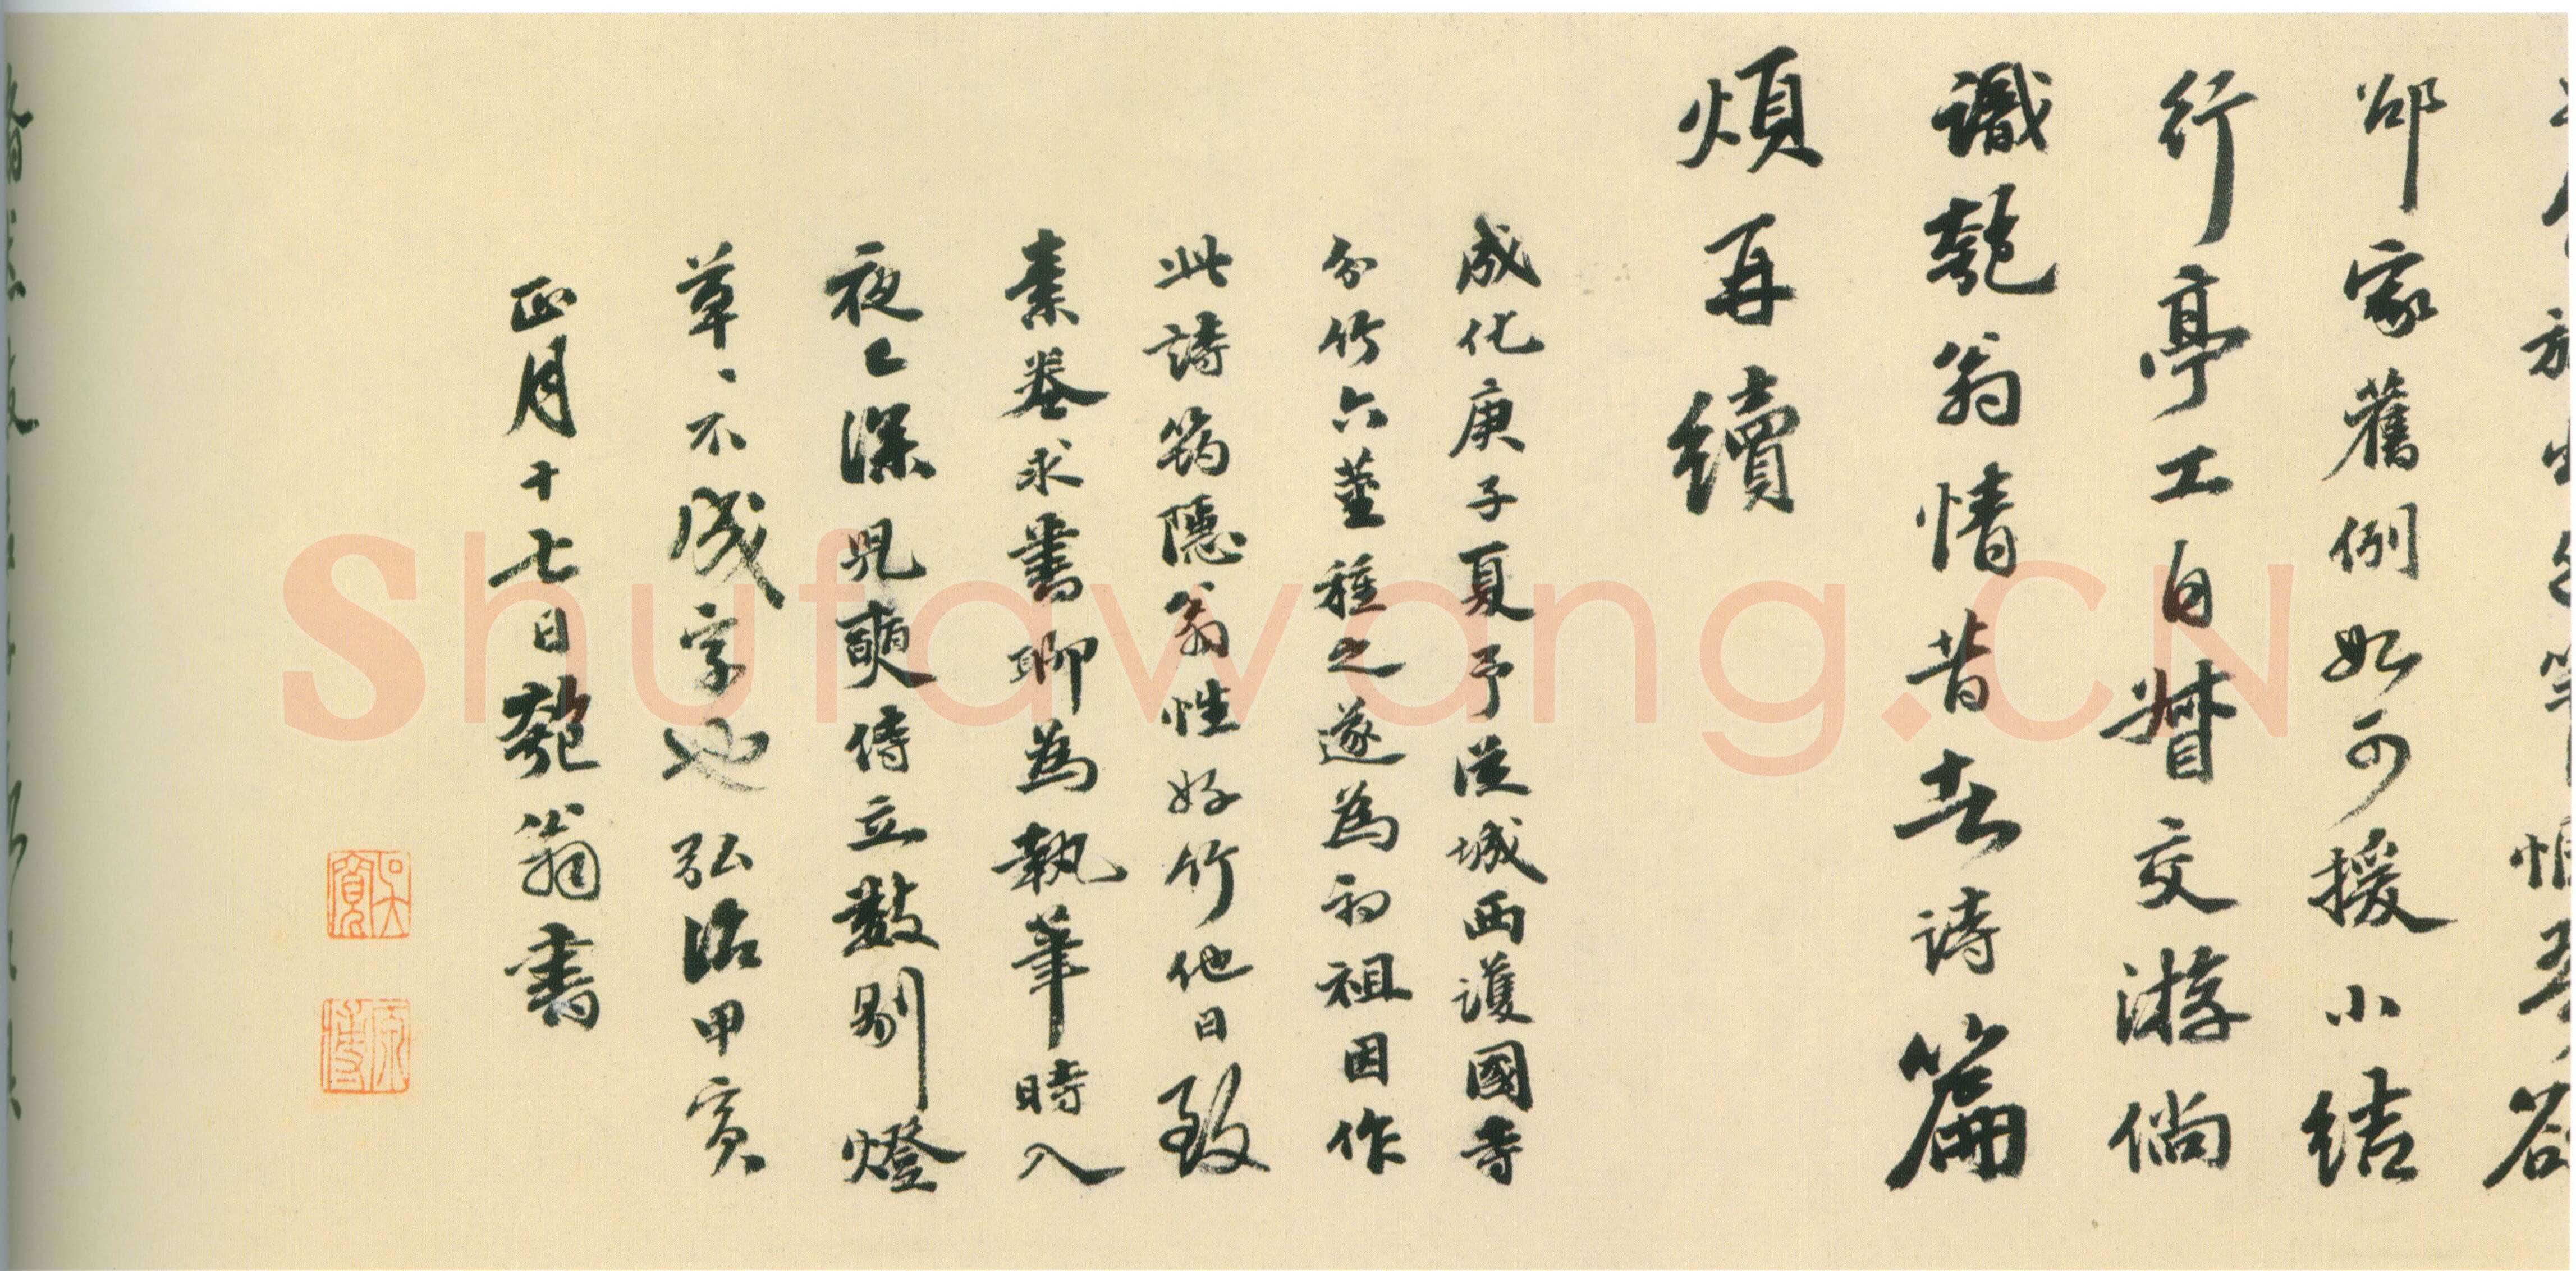 邵家舊例如可援小結
行亭工自督交游倘
識匏翁情昔去詩篇
煩再續
成化庚子夏予從城西護國寺
分竹六莖種之遂為初祖因作
此詩筠隱翁性好竹他日致
素卷求書聊為執筆時入
夜已深兒奭侍立數剔燈
草、不成字也弘治甲寅
正月十七日匏翁書
吳寬
原博
Shufawang.CN